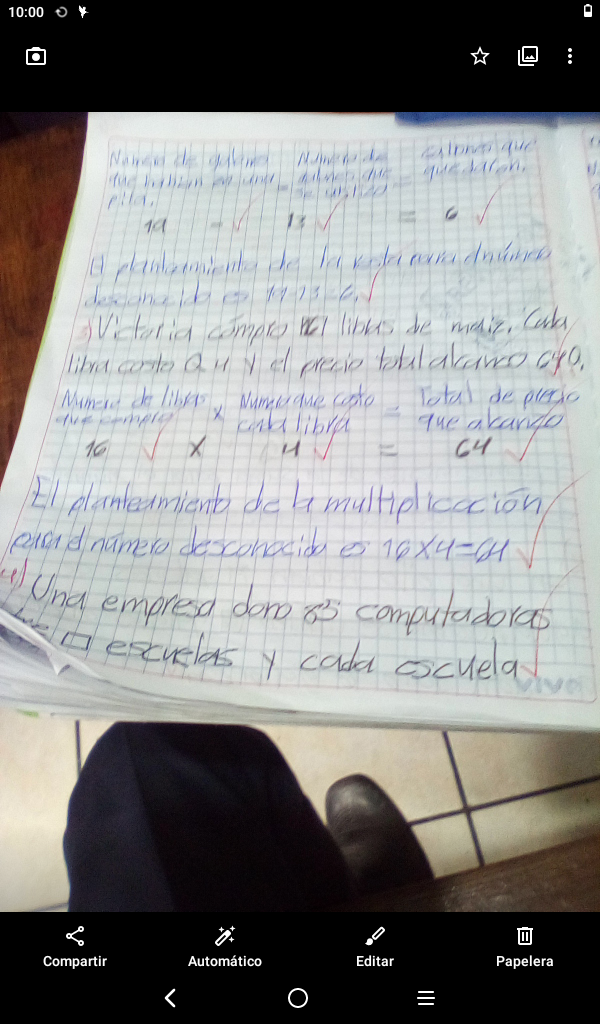 10:00
Número de
que habian en una
pila.
que
quedaron.
19 - 13 = 6
El planteamiento de la resta para el número
desconocido es 19-13=6.
3) Victoria compro 161 libras de maiz. Cada
libra costo Q 4 y el precio total alcanzo 640.
Numero de libras que compro x Numero que costo cada libra = Total de precio que alcanzo
16 x 4 = 64
El planteamiento de la multiplicación
para el número desconocido es 16x4=64
4) Una empresa dono 85 computadoras
□ escuelas y cada escuela
vivo
Compartir Automático Editar Papelera